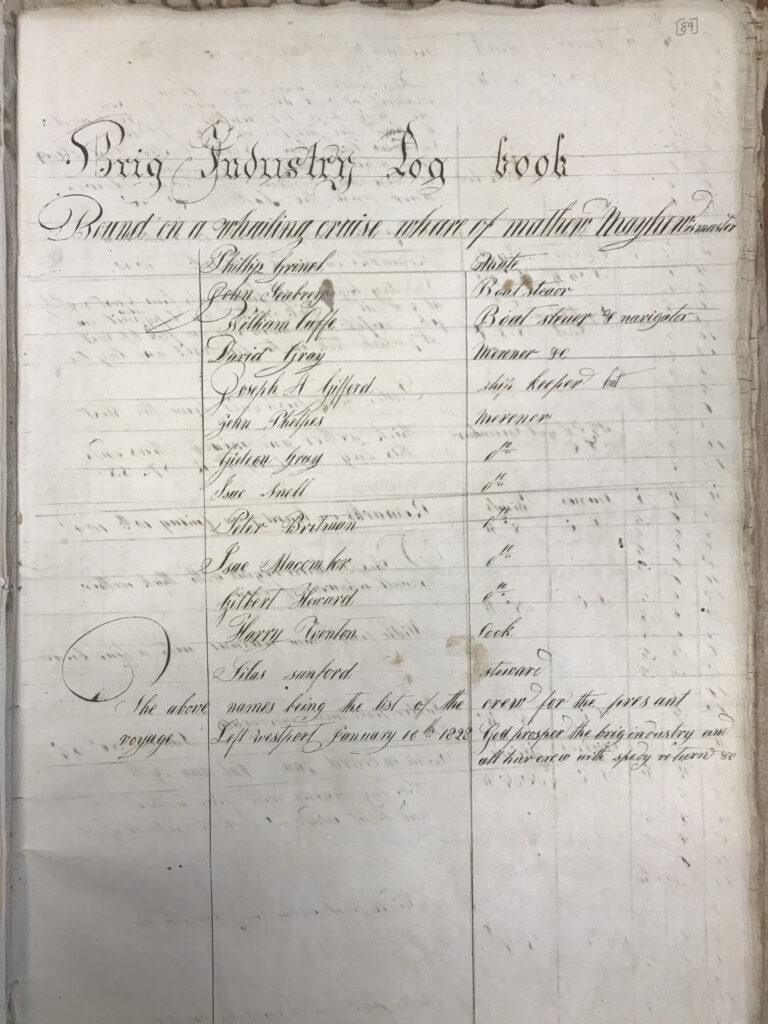 [89]
Brig Industry Log book
Bound on a whailing cruise whare of mathew Mayhew is master
Phillip Grinel Mate
John Seabrey Boat stear
William Cuffe Boat steuer & navigator
David Gray Merener &c
Joseph A Gifford ship keeper but
John Phelpes Merener
Gideon Gray do
Isac Snell do
Peter Britman do
Isac Macomber do
Gilbert Howard do
Harry Cook
Silas sanford steward
The above names being the list of the crew for the presant
voyage Left westport January 10th 1822 God prosper the brig industry and
all hur crew with spedy return &c